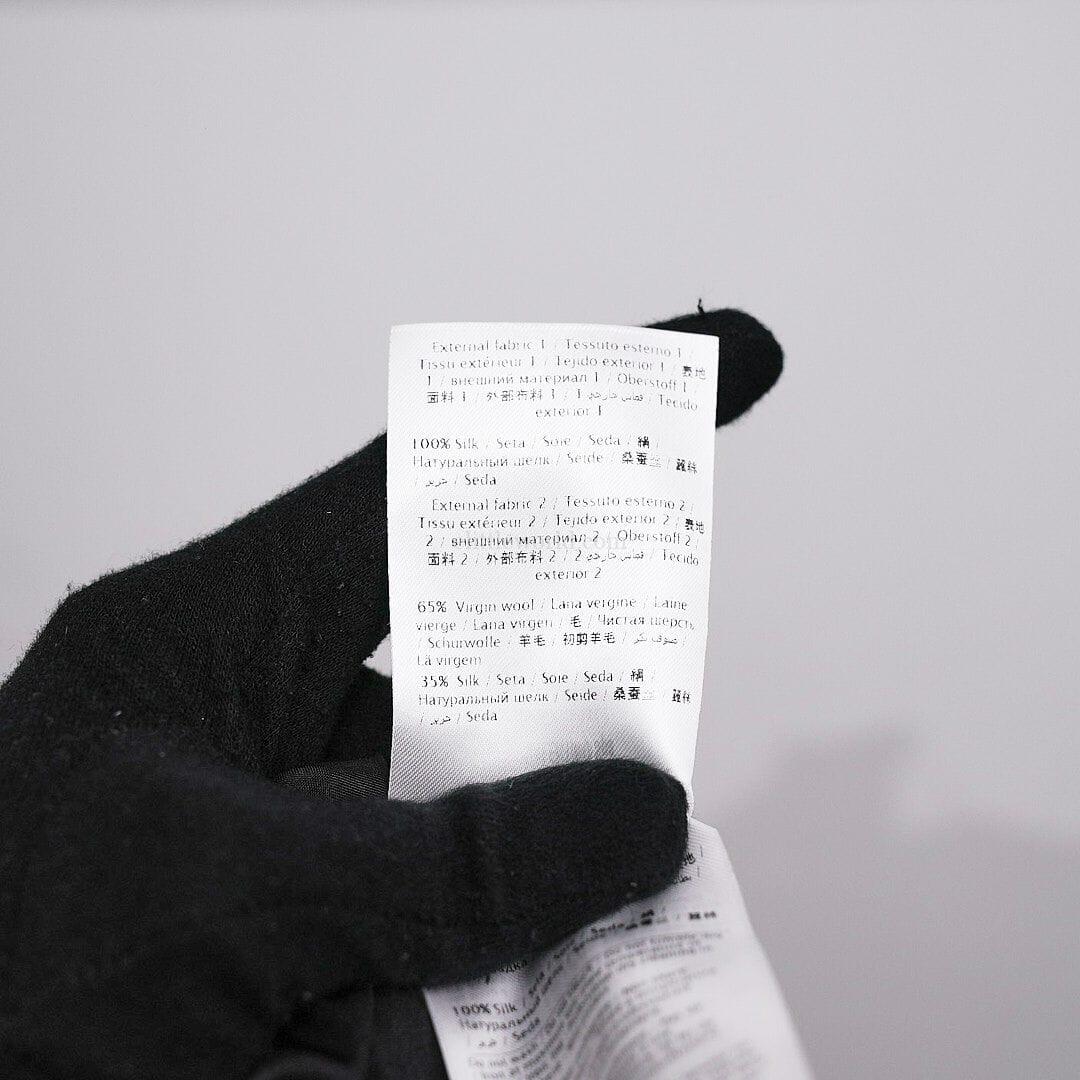 External fabric 1 / Tessuto esterno 1 /
Tissu extérieur 1 / Tejido exterior 1 / 表地
1 / внешний материал 1 / Oberstoff 1
面料 1 / 外部布料 1 / 1 قماس خارجي / Tecido
exterior 1
100% Silk / Seta / Soie / Seda / 絹 /
Натуральный шелк / Seide / 桑蚕丝 / 蠶絲
/ حرير / Seda
External fabric 2 / Tessuto esterno 2 /
Tissu extérieur 2 / Tejido exterior 2 / 表地
2 / внешний материал 2 / Oberstoff 2 /
面料 2 / 外部布料 2 / 2 قماس خارجي / Tecido
exterior 2
65% Virgin wool / Lana vergine / Laine
vierge / Lana virgen / 毛 / Чистая шерсть
/ Schurwolle / 羊毛 / 初剪羊毛 / صوف بكر /
Lã virgem
35% Silk / Seta / Soie / Seda / 絹 /
Натуральный шелк / Seide / 桑蚕丝 / 蠶絲
/ حرير / Seda
100% Silk /
Натуральный
/ حرير / Seda
Do not wash